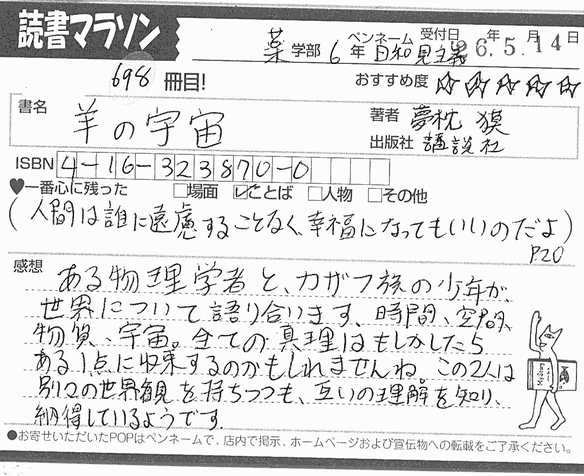 読書マラソン
薬 学部 6 年 ペンネーム 日和見主義 受付日 年 月 日
26.5.14
698 冊目!
おすすめ度 ☆☆☆☆☆
書名 羊の宇宙
著者 夢枕 獏
出版社 講談社
ISBN 4-16-323870-0
♥一番心に残った □場面 ☑ことば □人物 □その他
(人間は誰に遠慮することなく、幸福になってもいいのだよ)
P20
感想 ある物理学者と、カザフ族の少年が、
世界について語り合います。時間、空間、
物質、宇宙。全ての真理はもしかしたら
ある1点に収束するのかもしれませんね。この2人は
別々の世界観を持ちつつも、互いの理解を知り、
納得しているようです。
●お寄せいただいたPOPはペンネームで、店内で掲示、ホームページおよび宣伝物への転載をご了承ください。